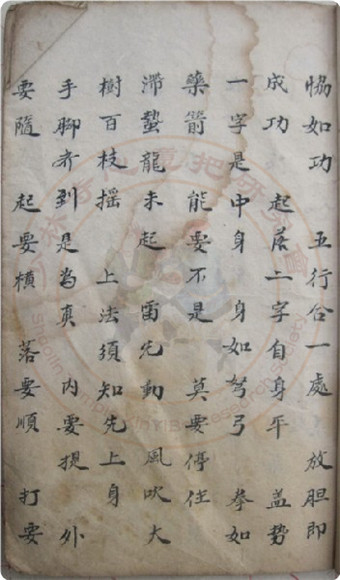 恊如功 五行合一處 放胆即
成功 起落二字自身平 盖势
一字是中身 身如弩弓 拳如
藥箭 能要不是 莫要停住
滞蛰龍未起 雷先動 風吹大
樹百枝摇 上法須知先上身
手脚齐到是為真 内要提 外
要隨 起要横 落要順 打要